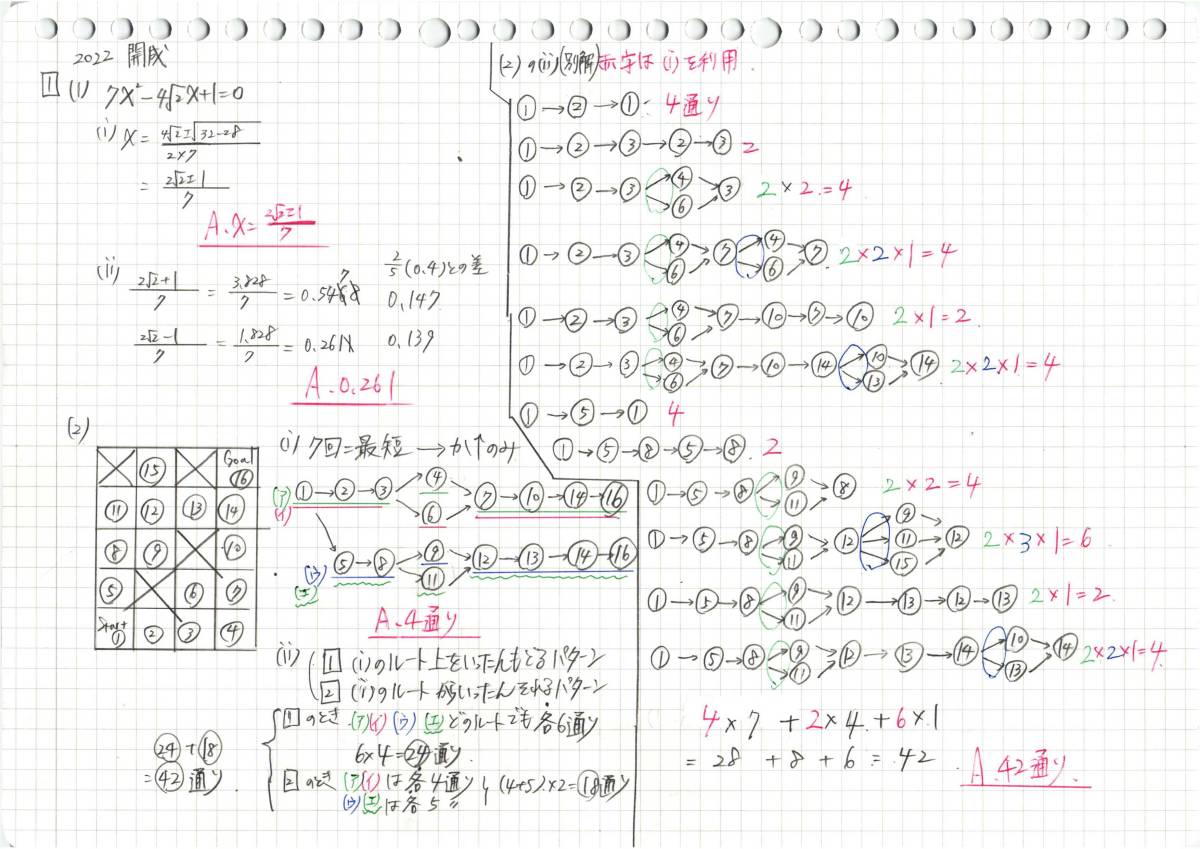 2022 開成
1 (1) 7x²-4√2x+1=0
(i) x= (4√2±√(32-28))/(2×7)
= (2√2±1)/7
A. x= (2√2±1)/7
(ii) 2/5(0.4)との差
(2√2+1)/7 = 3.828/7 = 0.547 0.147
(2√2-1)/7 = 1.828/7 = 0.261 0.139
A. 0.261
(2)
⑮ Goal ⑯
⑪ ⑫ ⑬ ⑭
⑧ ⑨ ⑩
⑤ ⑥ ⑦
Start ① ② ③ ④
(i) 7回=最短 → →か↑のみ
(ア)(イ) ①→②→③ ④ ⑥ ⑦→⑩→⑭→⑯
(ウ)(エ) ⑤→⑧ ⑨ ⑪ ⑫→⑬→⑭→⑯
A. 4通り
(ii) 1 (i)のルート上をいったんもどるパターン
2 (i)のルートからいったんそれるパターン
1のとき (ア)(イ)(ウ)(エ)どのルートでも各6通り
6×4=24通り.
2のとき (ア)(イ)は各4通り (4+5)×2=18通り
(ウ)(エ)は各5〃
24+18
=42通り.
(2)の(ii)(別解)赤字は(i)を利用
①→②→①: 4通り
①→②→③→②→③ 2
①→②→③ ④ ⑥ →③ 2×2=4
①→②→③ ④ ⑥ →⑦ ④ ⑥ →⑦ 2×2×1=4
①→②→③ ④ ⑥ →⑦→⑩→⑦→⑩ 2×1=2
①→②→③ ④ ⑥ →⑦→⑩→⑭ ⑩ ⑬ →⑭ 2×2×1=4
①→⑤→① 4
①→⑤→⑧→⑤→⑧ 2
①→⑤→⑧ ⑨ ⑪ →⑧ 2×2=4
①→⑤→⑧ ⑨ ⑪ →⑫ ⑨ ⑪ ⑮ →⑫ 2×3×1=6
①→⑤→⑧ ⑨ ⑪ →⑫→⑬→⑫→⑬ 2×1=2
①→⑤→⑧ ⑨ ⑪ →⑫→⑬→⑭ ⑩ ⑬ →⑭ 2×2×1=4
4×7+2×4+6×1
=28+8+6=42
A. 42通り.